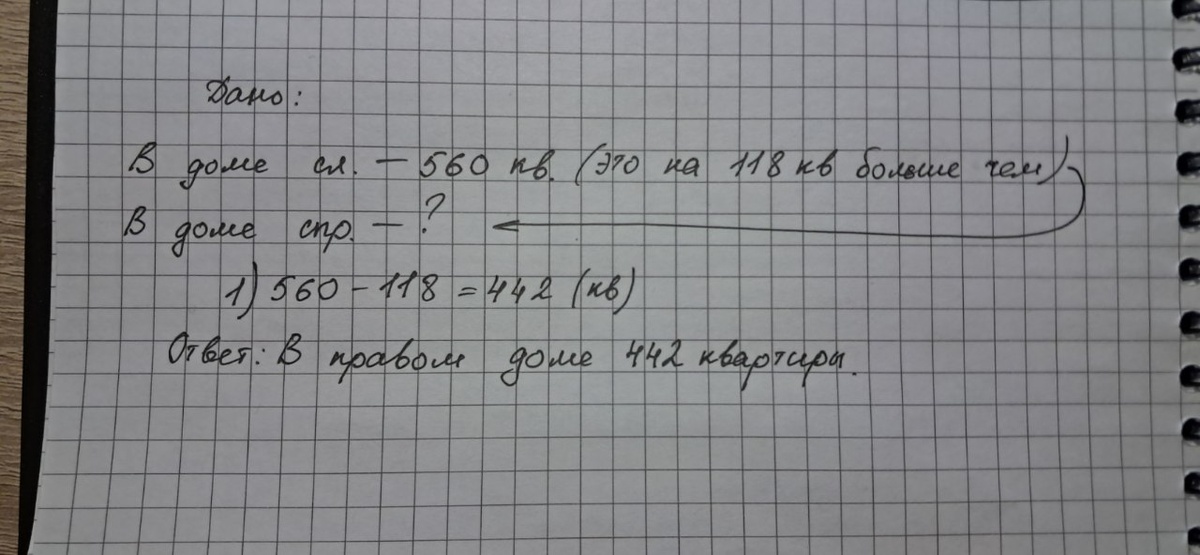 Дано:
В доме сл. – 560 кв. (это на 118 кв больше чем)
В доме спр. – ?
1) 560 – 118 = 442 (кв)
Ответ: В правом доме 442 квартиры.